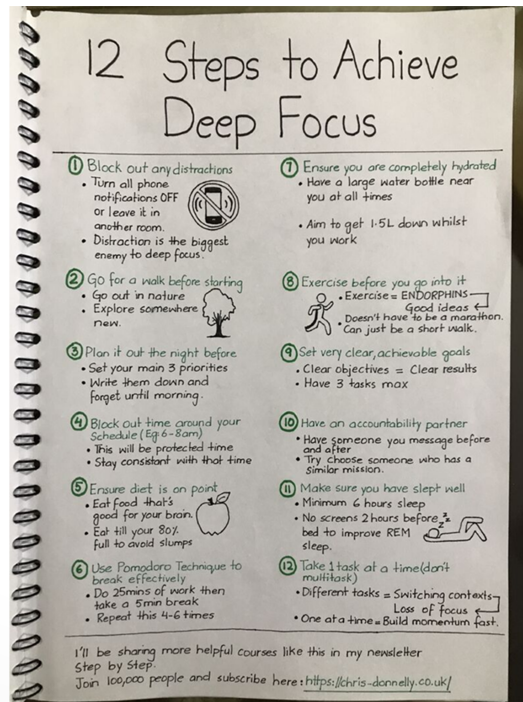 12 Steps to Achieve
Deep Focus
① Block out any distractions
• Turn all phone
notifications OFF
or leave it in
another room.
• Distraction is the biggest
enemy to deep focus.
② Go for a walk before starting
• Go out in nature
• Explore somewhere
new.
③ Plan it out the night before
• Set your main 3 priorities
• Write them down and
forget until morning.
④ Block out time around your
Schedule (Eg: 6-8am)
• This will be protected time
• Stay consistant with that time
⑤ Ensure diet is on point
• Eat food that's
good for your brain.
• Eat till your 80%
full to avoid slumps
⑥ Use Pomodoro Technique to
break effectively
• Do 25mins of work then
take a 5min break
• Repeat this 4-6 times
⑦ Ensure you are completely hydrated
• Have a large water bottle near
you at all times
• Aim to get 1.5L down whilst
you work
⑧ Exercise before you go into it
• Exercise = ENDORPHINS
Good ideas
• Doesn't have to be a marathon.
• Can just be a short walk.
⑨ Set very clear, achievable goals
• Clear objectives = Clear results
• Have 3 tasks max
⑩ Have an accountability partner
• Have someone you message before
and after
• Try choose someone who has a
similar mission.
⑪ Make sure you have slept well
• Minimum 6 hours sleep
• No screens 2 hours before
bed to improve REM
sleep.
z z z
⑫ Take 1 task at a time (don't
multitask)
• Different tasks = Switching contexts
Loss of focus
• One at a time = Build momentum fast.
I'll be sharing more helpful courses like this in my newsletter
Step by Step.
Join 100,000 people and subscribe here: https://chris-donnelly.co.uk/